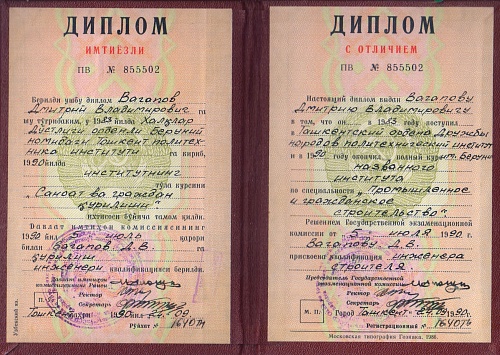 ДИПЛОМ
ИМТИЁЗЛИ
ПВ № 855502
Берилди ушбу диплом Вагапов
Дмитрий Владимирович га
шу тўғрисиким, у 1983 йилда Халқлар
Дўстлиги орденли Беруний
номидаги Тошкент политех-
ника институти га кириб,
1990 йилда
институтнинг
тўла курсини
„Саноат ва граждан
қурилиши"
ихтисоси бўйича тамом қилди.
Давлат имтиҳон комиссиясининг
1990 йил 5 июль қарори
билан Вагапов Д.В. га
қурилиш
инженери квалификацияси берилди.
Давлат имтиҳон
комиссиясининг Раиси
Ректор
Секретарь
М. П.
Тошкент шаҳри 1990 йил 24.09
Рўйхат № 1640ТП
Узбекский яз.
ДИПЛОМ
С ОТЛИЧИЕМ
ПВ № 855502
Настоящий диплом выдан Вагапову
Дмитрию Владимировичу
в том, что он в 1983 году поступил
в Ташкентский ордена Дружбы
народов политехнический институт
и в 1990 году окончил полный курс им. Беруни
названного
института
по специальности „Промышленное
и гражданское
строительство"
Решением Государственной экзаменационной
комиссии от 5 июля 1990 г.
Вагапову Д.В.
присвоена квалификация инженера
строителя
Председатель Государственной
экзаменационной комиссии
Ректор
Секретарь
М. П. Город Ташкент 24.09 1990 г.
Регистрационный № 1640ТП
Московская типография Гознака. 1986.